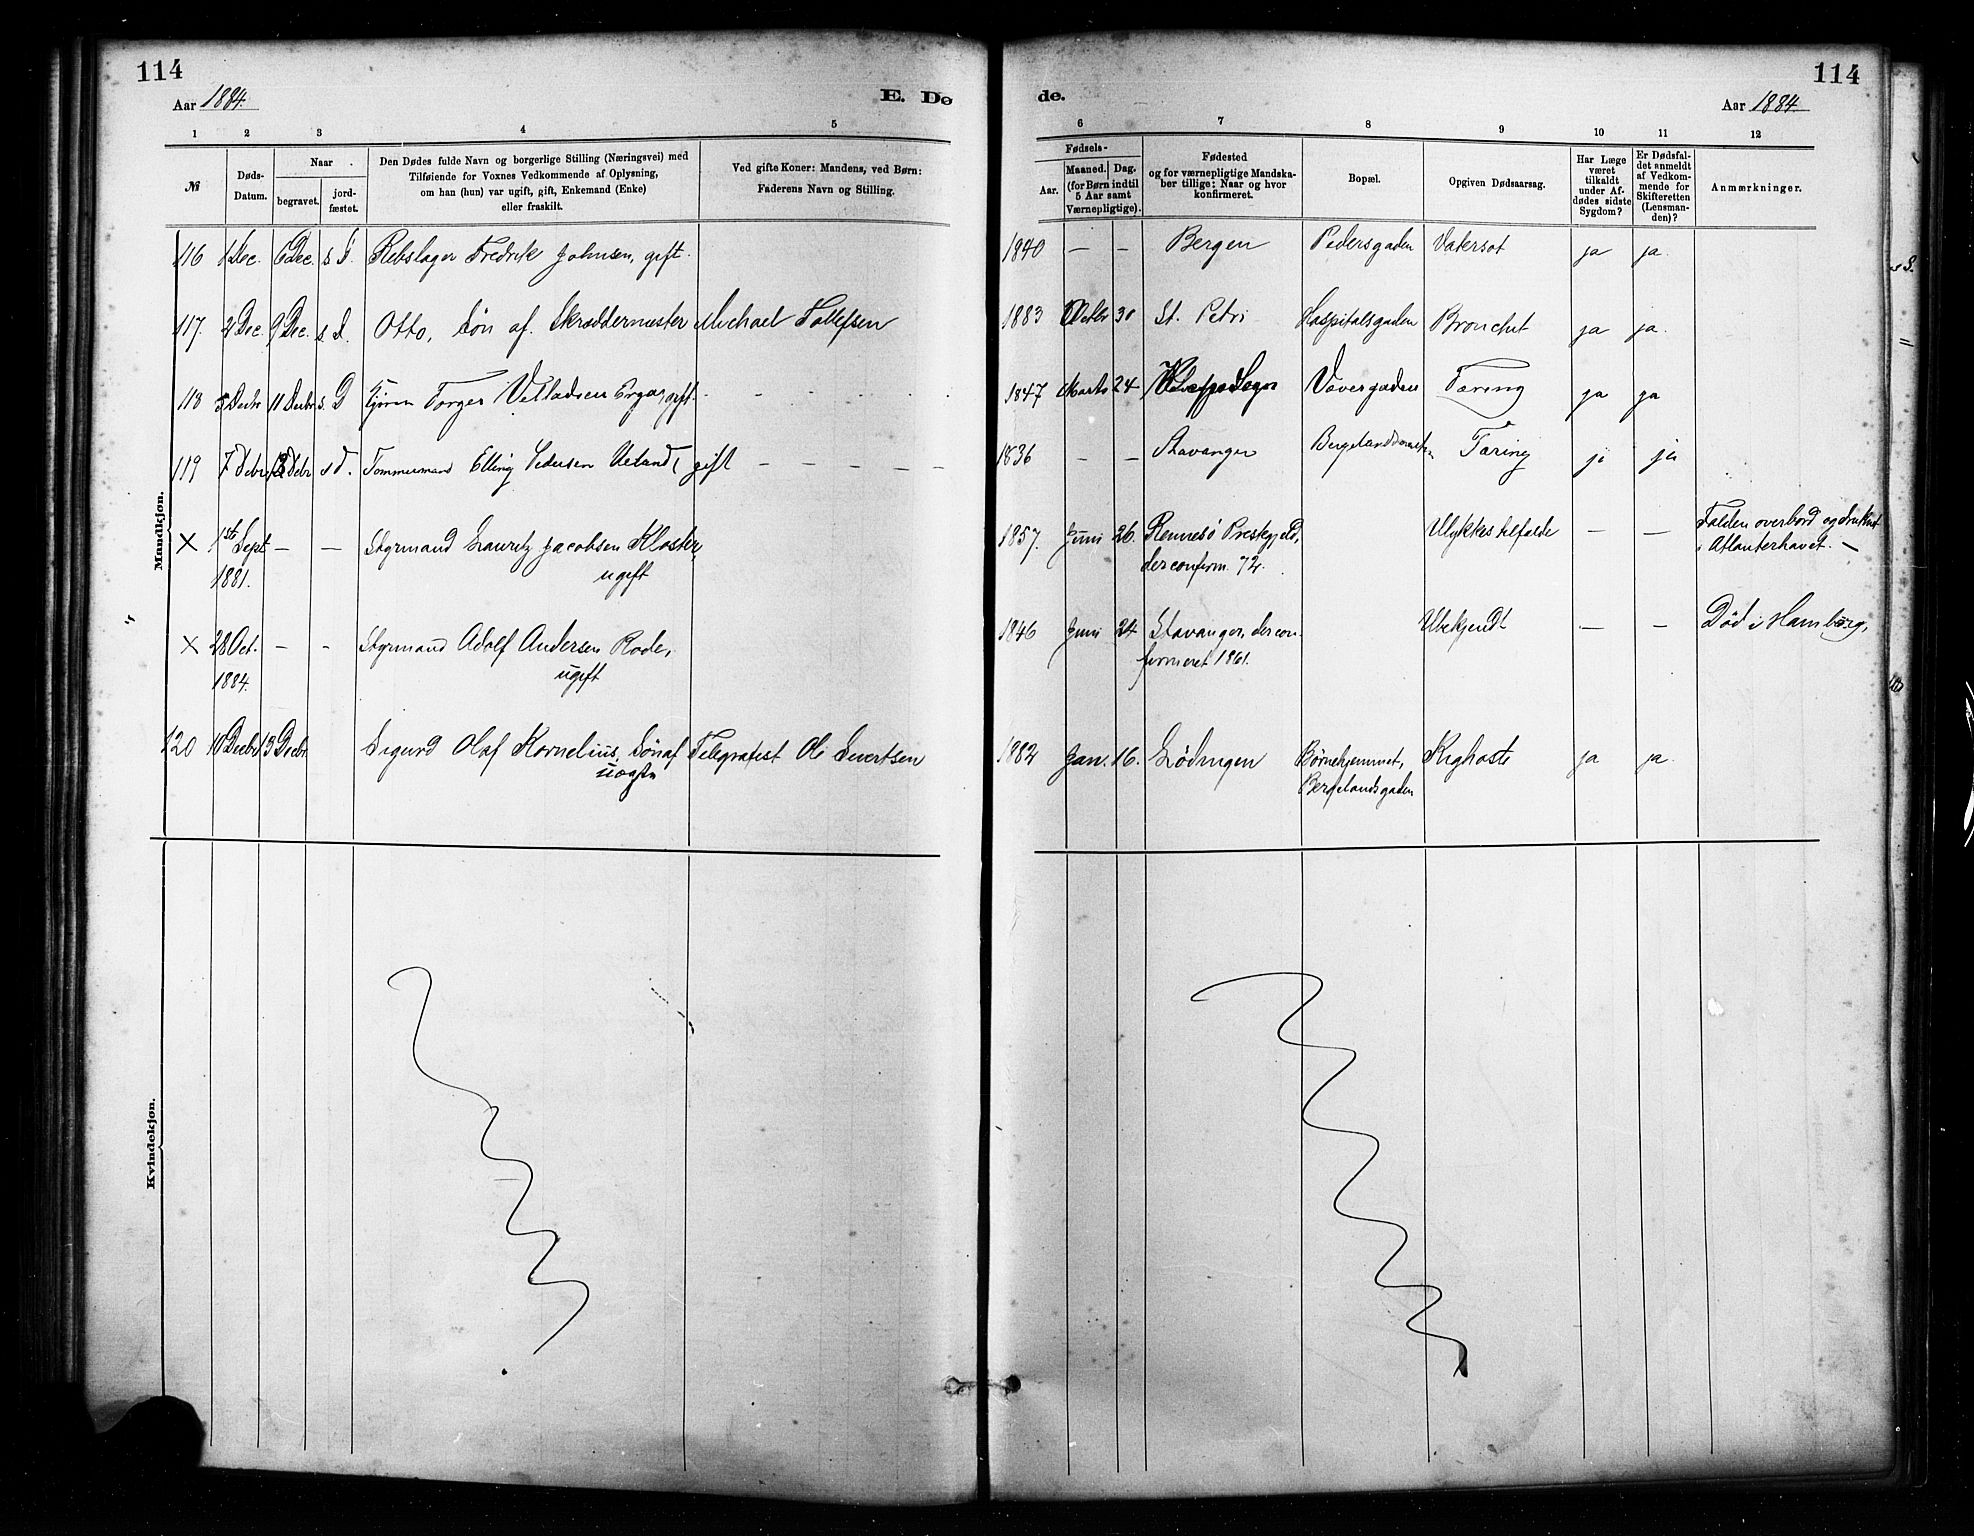 114
114
Aar 1884.
E. Dø
de.
Aar 1884.
1 2 3 4 5
6 7 8 9 10 11 12
№
Døds-
Datum.
Naar
begravet.
jord-
fæstet.
Den Dødes fulde Navn og borgerlige Stilling (Næringsvei) med
Tilføiende for Voxnes Vedkommende af Oplysning,
om han (hun) var ugift, gift, Enkemand (Enke)
eller fraskilt.
Ved gifte Koner: Mandens, ved Børn:
Faderens Navn og Stilling.
Fødsels-
Aar.
Maaned. Dag.
(for Børn indtil
5 Aar samt
Værnepligtige).
Fødested
og for værnepligtige Mandska-
ber tillige: Naar og hvor
konfirmeret.
Bopæl.
Opgiven Dødsaarsag.
Har Læge
været
tilkaldt
under Af-
dødes sidste
Sygdom?
Er Dødsfal-
det anmeldt
af Vedkom-
mende for
Skifteretten
(Lensman-
den)?
Anmærkninger.
Mandkjøn.
116 1 Dec. 6 Dec. s. D. Rebslager Fredrik Johnsen, gift. 1840 — — Bergen Pedersgaden Vatersot ja ja.
117. 2 Dec. 9 Dec. s. D. Otto, Søn af. Skræddermester Michael Tollefsen 1883 Octbr 30 St. Petri Hospitalsgaden Bronchit ja ja.
118 5 Decbr 11 Decbr s. D Torger gift. 1847 Marts 24 Tæring ja ja
119 7 Debr 13 Debr s d. Tømmermand Elling Pedersen Ueland, gift — — — — — 1836 — — Stavanger Tæring ja ja
× 1st Sept — — Styrmand Lauritz Jacobsen Kloster, 1857. Juni 26. Rennesø Prestegjeld, Ulykkestilfælde — — Falden overbord og druknet
1881. ugift der confirm. 72. i Atlanterhavet. —
× 28 Oct. — — Styrmand Adolf Andersen Rode, 1846 Juni 24 Stavanger, der con- Ubekjendt — — Død i Hamburg,
1884. ugift firmeret 1861.
120 10 Decbr 13 Decbr. Sigurd Olaf Kornelius, Søn af Telegrafist Ole Sivertsen 1882 Jan. 16. Lødingen Børnehjemmet, Kighoste ja ja.
uægte Bergelandsgaden
Kvindekjøn.